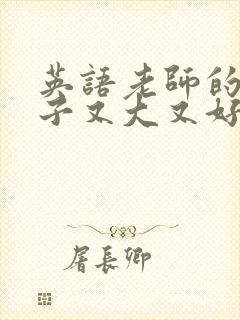 英語老師的
子又大又好
屠長卿